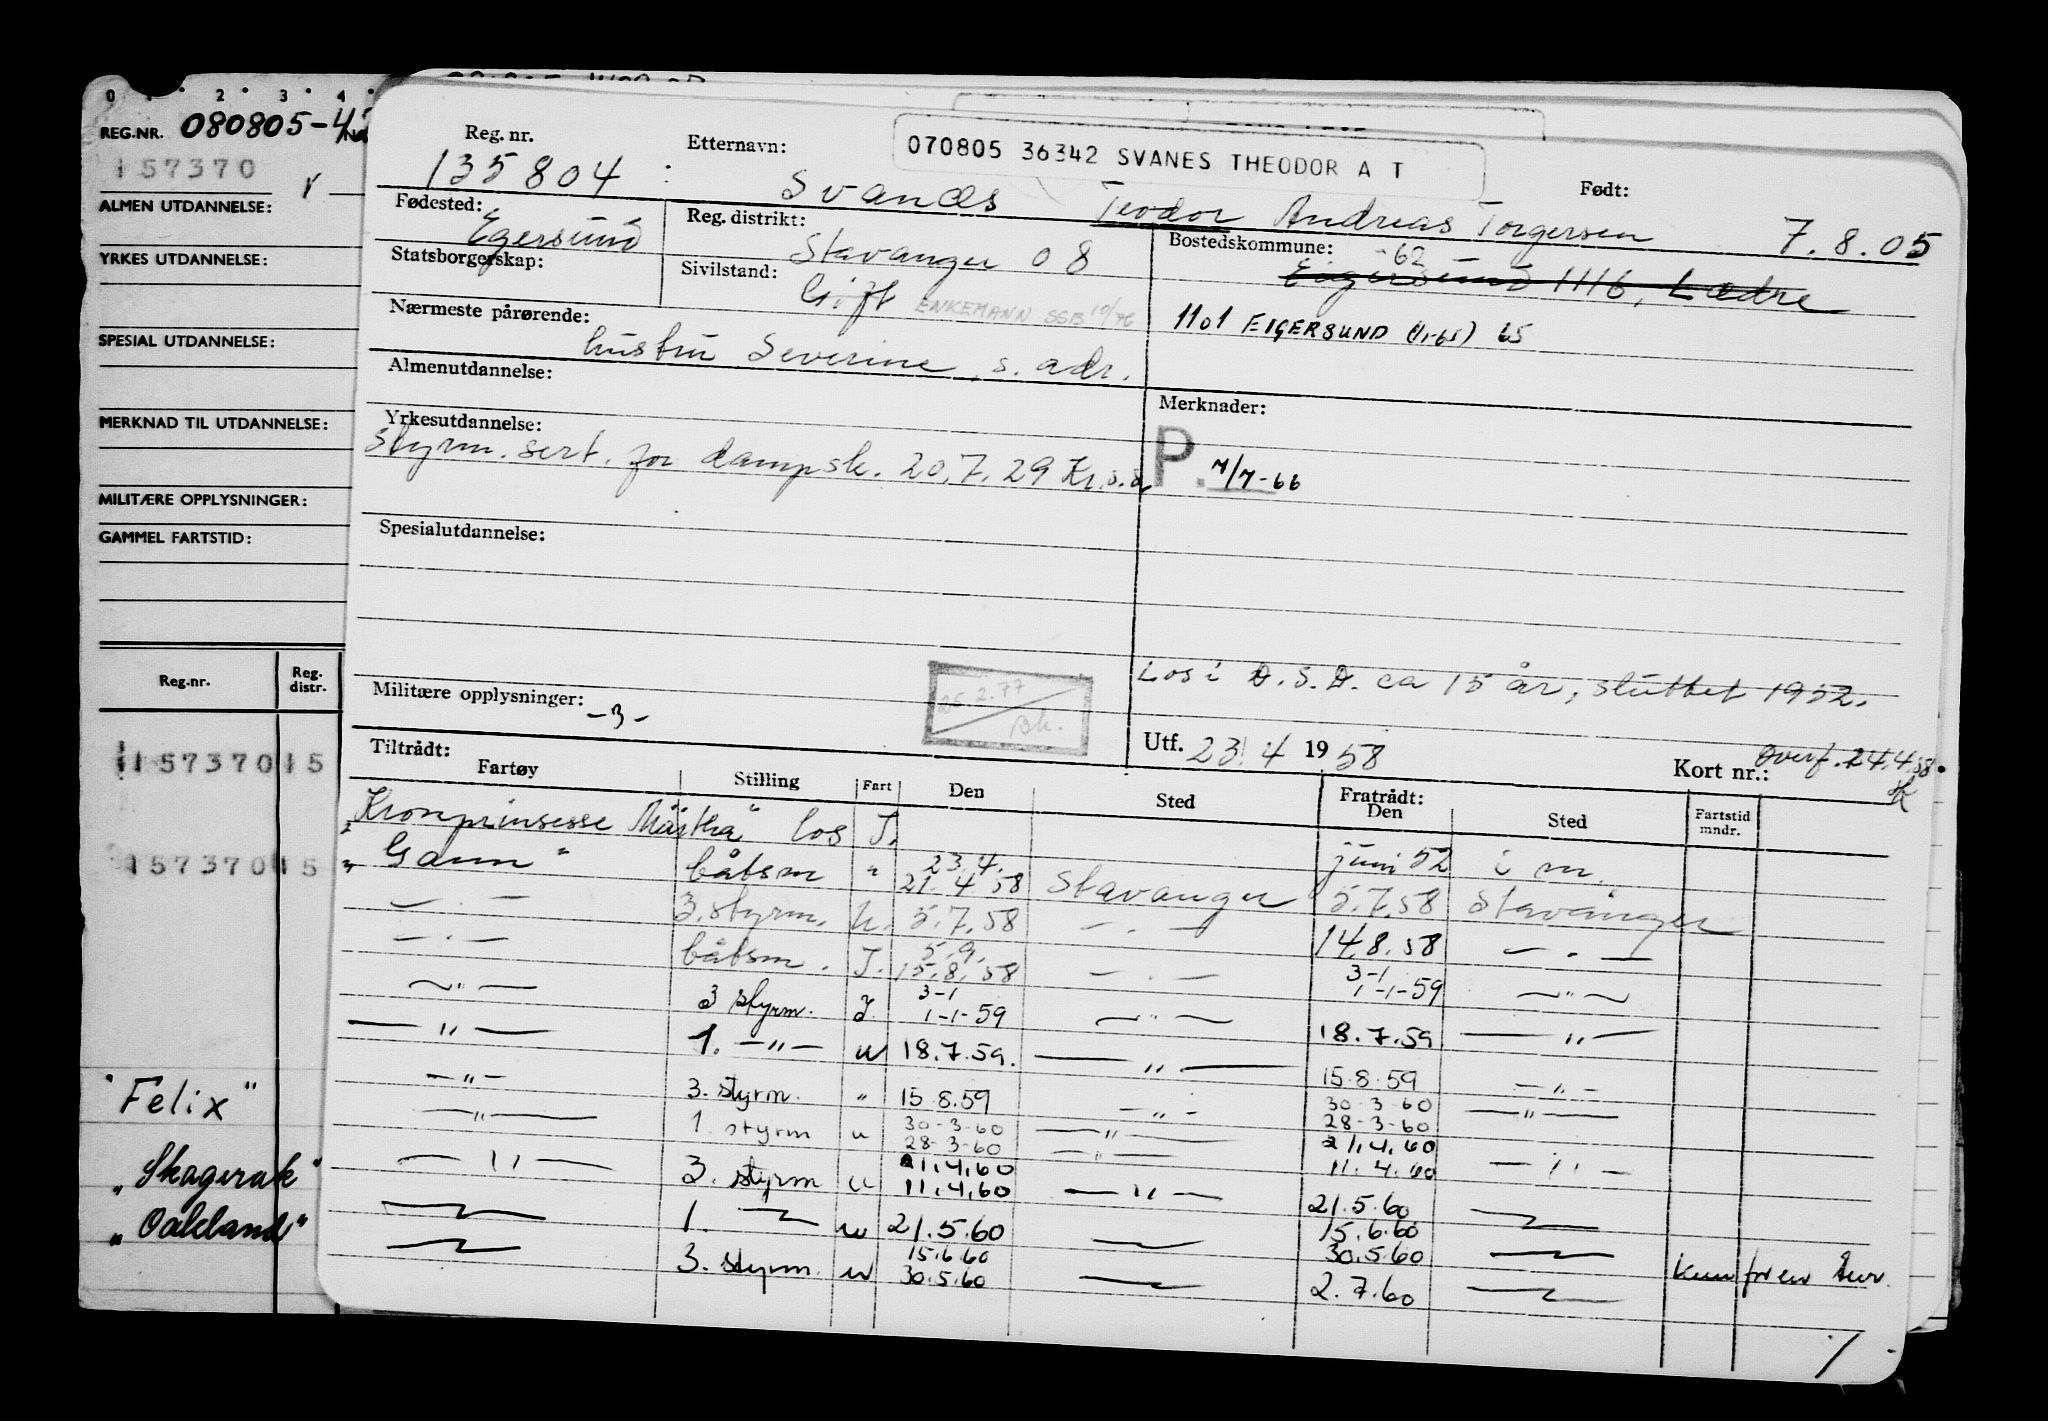 0 1 2 3 4
REG.NR. 080805-42
157370
ALMEN UTDANNELSE:
YRKES UTDANNELSE:
SPESIAL UTDANNELSE:
MERKNAD TIL UTDANNELSE:
MILITÆRE OPPLYSNINGER:
GAMMEL FARTSTID:
Reg.nr. Reg. distr.
15737015
15737015
"Felix"
"Skagerak"
"Oakland"
070805 36342 SVANES THEODOR A T
Reg. nr. Etternavn: Født:
135804 Svanæs Teodor Andreas Torgersen 7.8.05
Fødested: Reg. distrikt: Bostedskommune:
Egersund Stavanger 08 -62
Eigersund 1116, Lædre
Statsborgerskap: Sivilstand:
Gift ENKEMANN SSB 10/76
1101 EIGERSUND (1/1-65) 65
Nærmeste pårørende:
hustru Severine, s. adr.
Almenutdannelse: Merknader:
Yrkesutdannelse:
Styrm. sert. for dampsk. 20.7.29 Kr.s.
P. 7/7-66
Spesialutdannelse:
Los i D.S.D. ca 15 år, sluttet 1952.
25.2.77
Militære opplysninger: -3-
Utf. 23/4 1958 Kort nr.: Overf. 24.4.58.
Tiltrådt: Fratrådt:
Fartøy Stilling Fart Den Sted Den Sted Fartstid mndr.
"Kronprinsesse Märtha" los I. juni 52 i m.
"Gann" båtsm " 23.4. 21.4 58 Stavanger 5.7.58 Stavanger
— . — 3. styrm. U. 5.7.58 — . — 14.8.58 — . —
— . — båtsm. I. 5.9. 15.8.58 — . — 3-1 1-1-59 — " —
— " — 3 styrm. I 3-1 1-1-59 — " — 18.7.59 — " —
— " — 1. — " — u 18.7.59. — " — 15.8.59 — " —
— " — 3. styrm. " 15.8.59 — " — 30-3-60 28-3-60 — " —
— " — 1. styrm u 30-3-60 28-3-60 — " — 21.4.60 11.4.60 — " —
— " — 3. styrm u 21.4.60 11.4.60 — " — 21.5.60 — " —
— " — 1. — " — u 21.5.60 — " — 15.6.60 30.5.60 — " —
— " — 3. styrm. u 15.6.60 30.5.60 — " — 2.7.60 — " — Kun for en